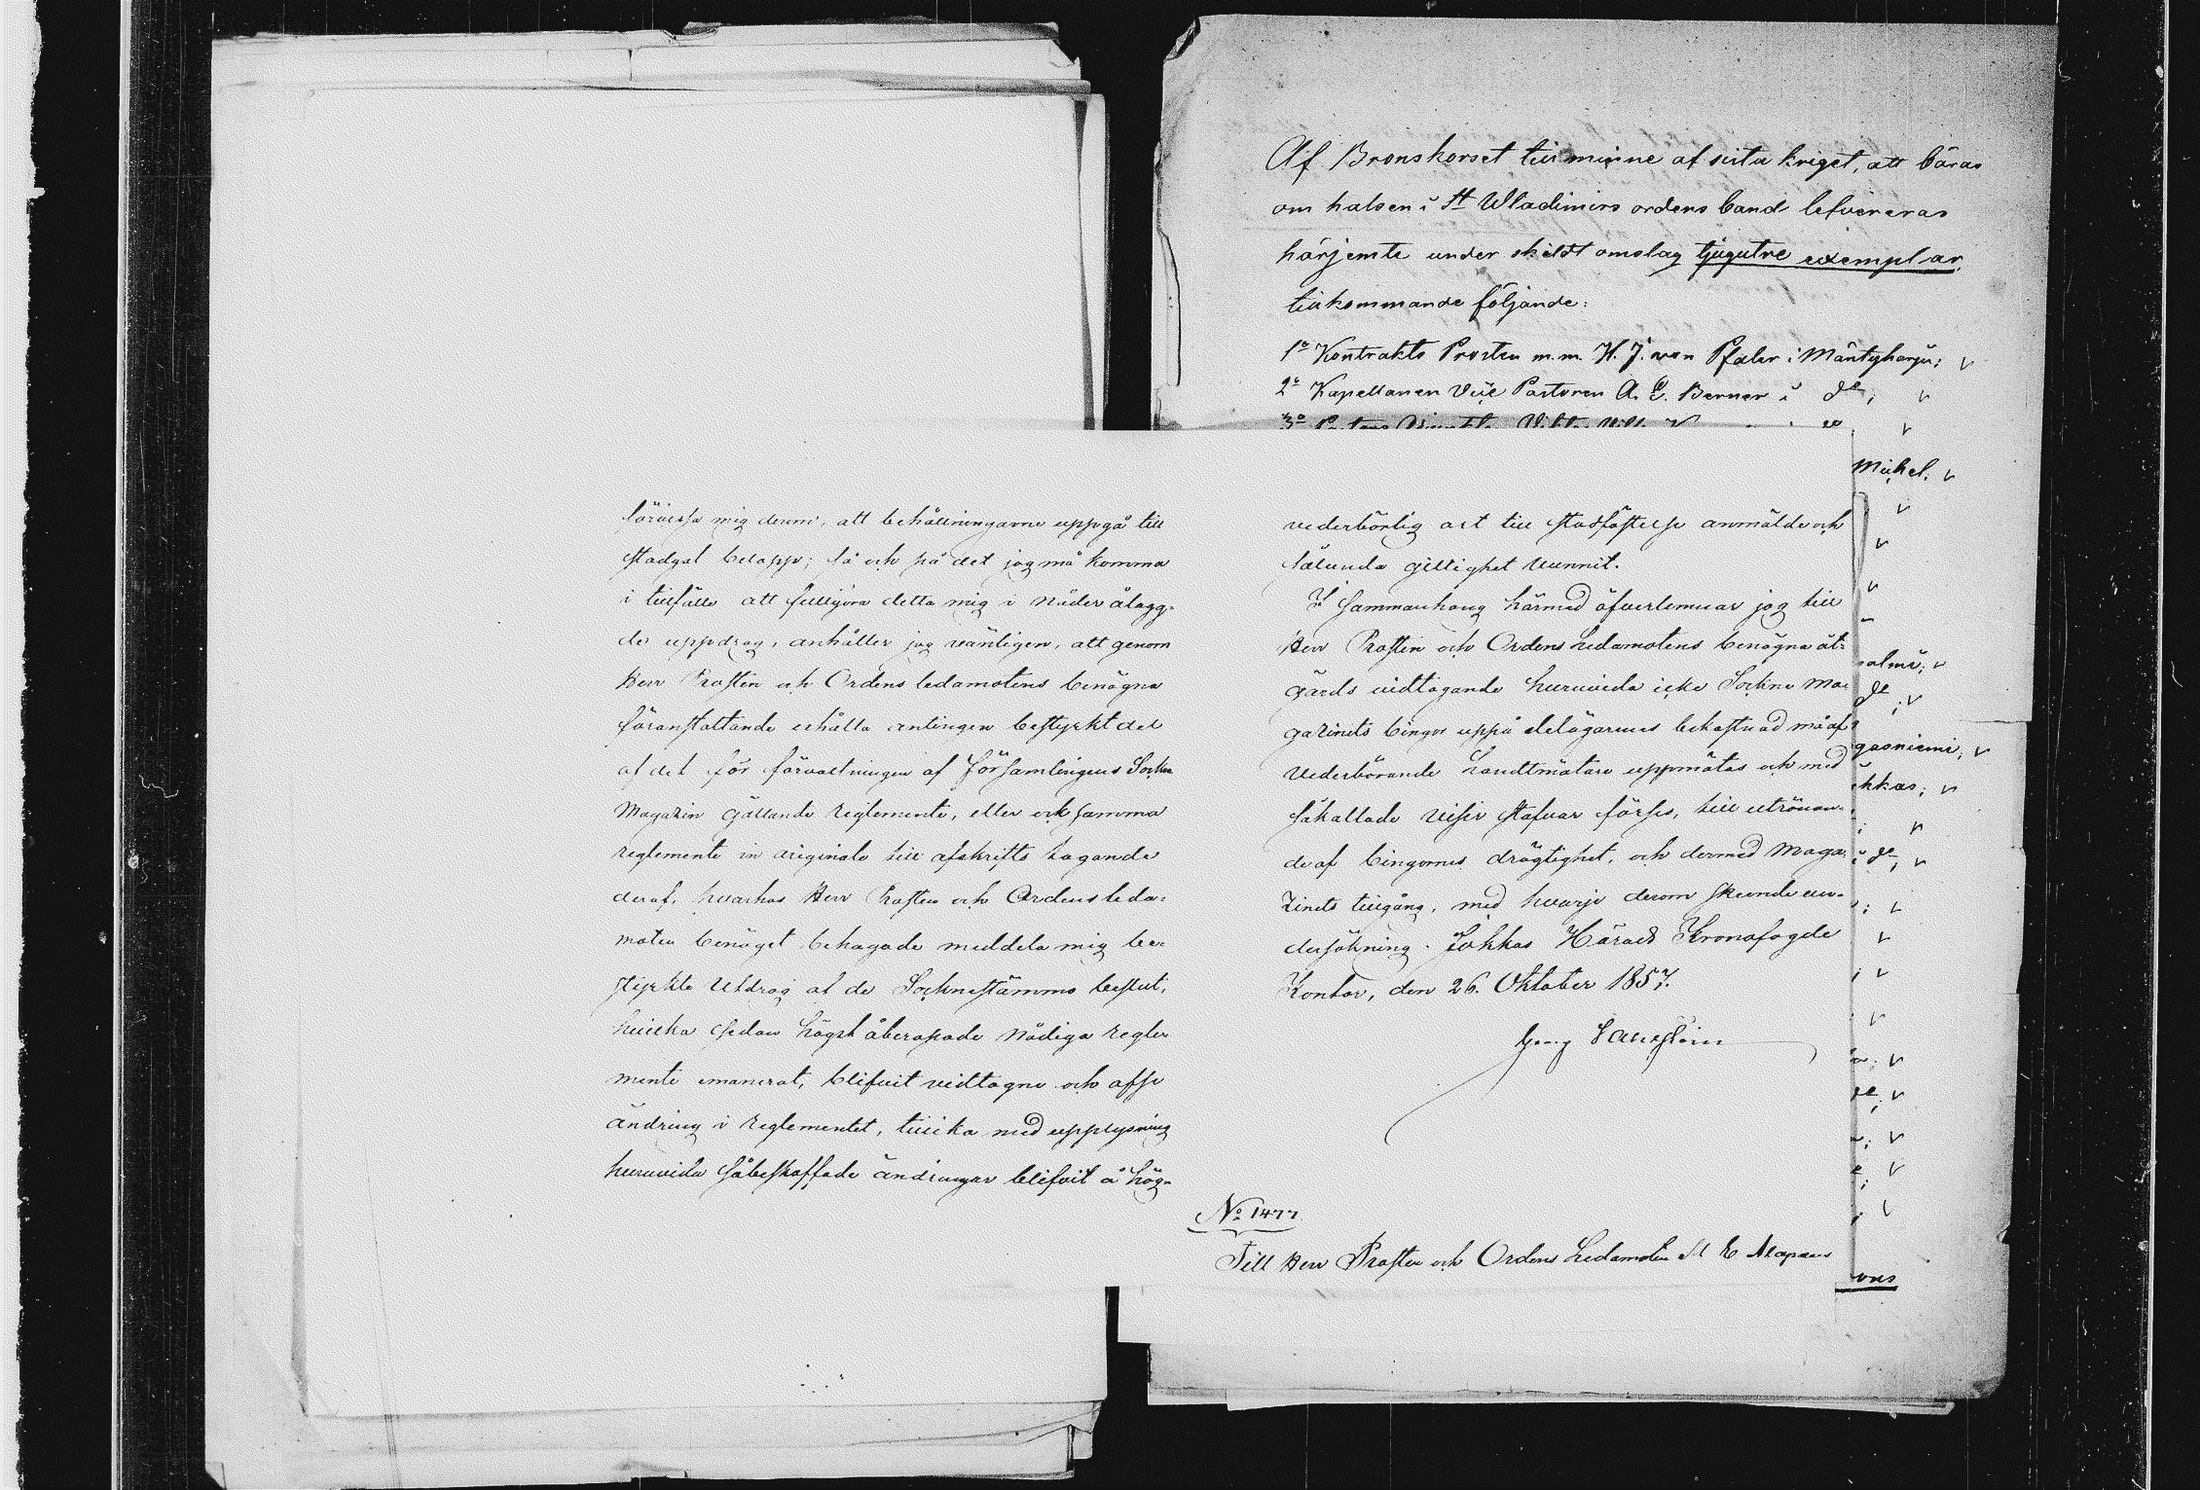 Af Bronskorset till minne af sista kriget, att bäras
om halsen i St Wladimirs ordens band lefvereras
härjemte under skildt omslag tjugutre exemplar,
tillkommande följande:
1o Kontrakts Prosten m.m. H. J. von Pfaler i Mäntyharju; v
2o Kapellanen Vice Pastoren A. E. Berner i do; v
3o
Michel; v
försäkra mig derom, att behållningarne uppgå till
stadgat belopp; så och på det jag må komma
i tillfälle att fullgöra detta mig i nåder ålagg-
de uppdrag, anhåller jag vänligen, att genom
Herr Prosten och Ordens ledamotens benägna
föranstaltande erhålla antingen bestyrkt del
af det för förvaltningen af Församlingens Sockne
Magazin gällande reglemente, eller ock samma
reglemente in originale till afskrifts tagande
deraf, hvarhos Herr Prosten och Ordensleda-
moten benäget behagade meddela mig be-
styrkta Utdrag af de Socknestämmo beslut,
hvilka sedan högst åberopade Nådiga regle-
mente emanerat, blifvit vidtagne och afse
ändring i reglementet, tillika med upplysning
huruvida såbeskaffade ändringar blifvit å hög-
vederbörlig ort till stadfästelse anmälde och
sålunda gillighet vunnit.
I sammanhang härmed öfverlemnar jag till
Herr Prosten och Ordens Ledamotens benägna åt-
gärds vidtagande huruvida icke Sockne Ma-
gazinets bingar uppå delägarnes bekostnad må af
vederbörande Landtmätare uppmätas och med
såkallade visir stafvar förses, till utrönan-
de af bingarnes drägtighet, och dermed Maga-
zinets tillgång, med hvarje derom skeende un-
dersökning. Jokkas Härads Kronofogde
Kontor, den 26. Oktober 1857.
Georg
No 1477.
Till Herr Prosten och Ordens Ledamoten
salmi; v
de; v
gasniemi; v
kkas; v
i de; v